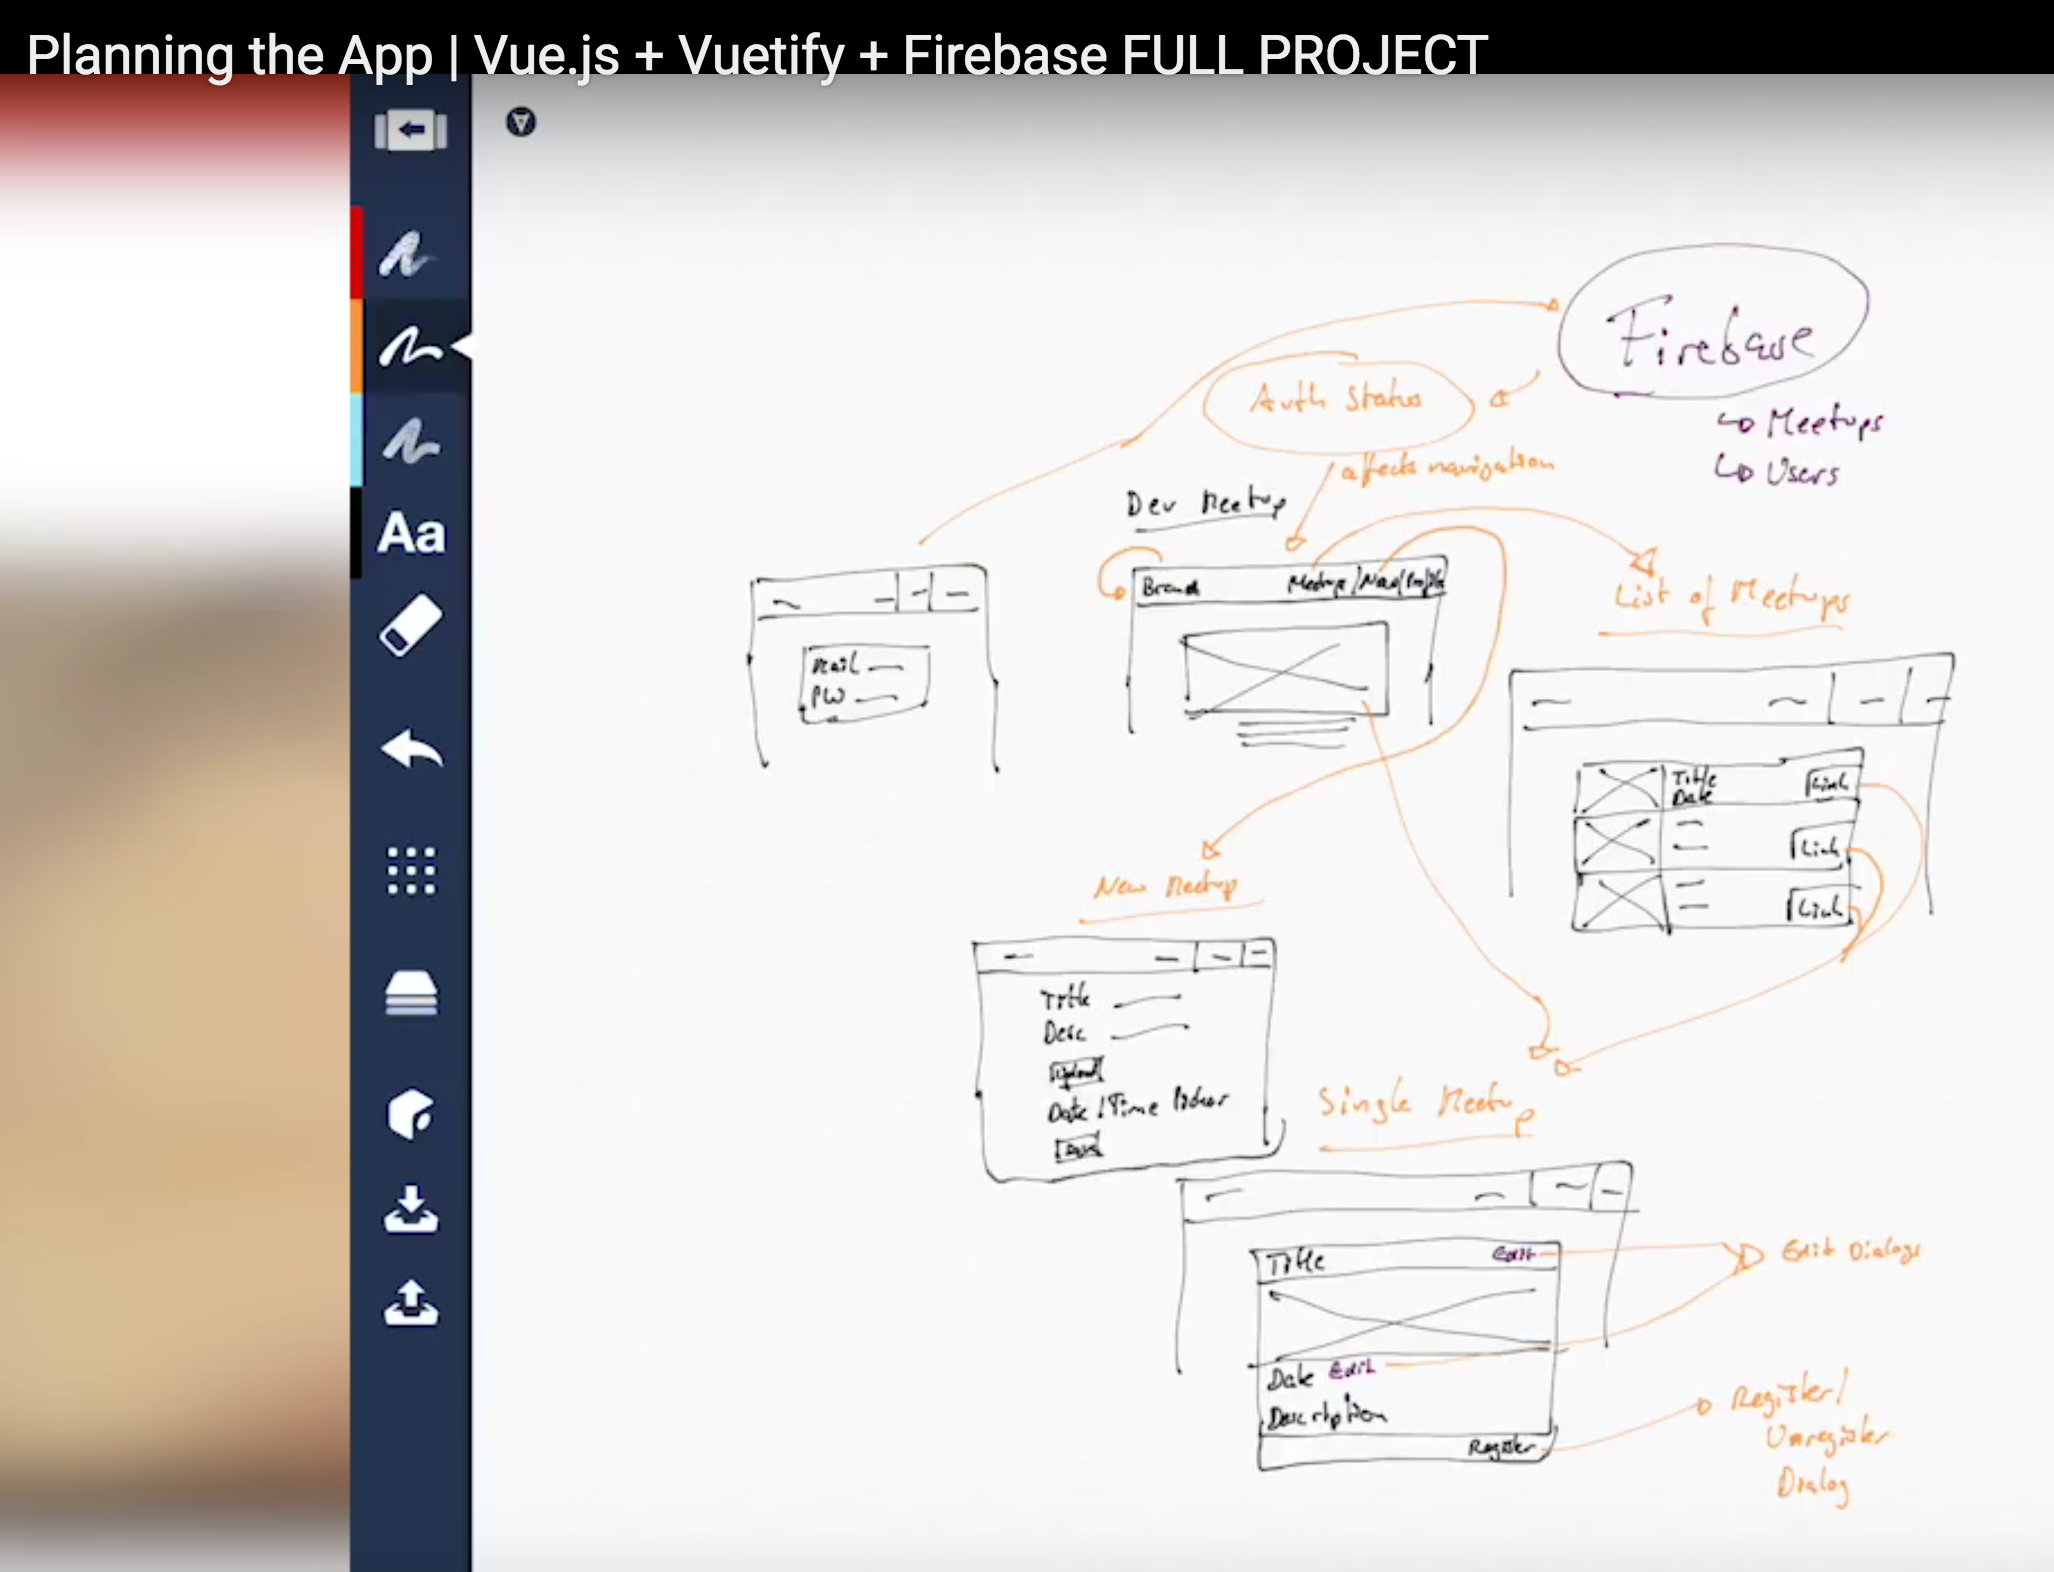 Planning the App | Vue.js + Vuetify + Firebase FULL PROJECT
Aa
Firebase
Meetups
Users
Auth Status
affects navigation
Dev Meetup
Brand
Meetups
Mail
PW
List of Meetups
Title
Date
Link
Link
Link
New Meetup
Title
Desc
Upload
Date/Time Picker
Save
Single Meetup
Title
Edit
Date Edit
Description
Register
Edit Dialogs
Register/
Unregister
Dialog